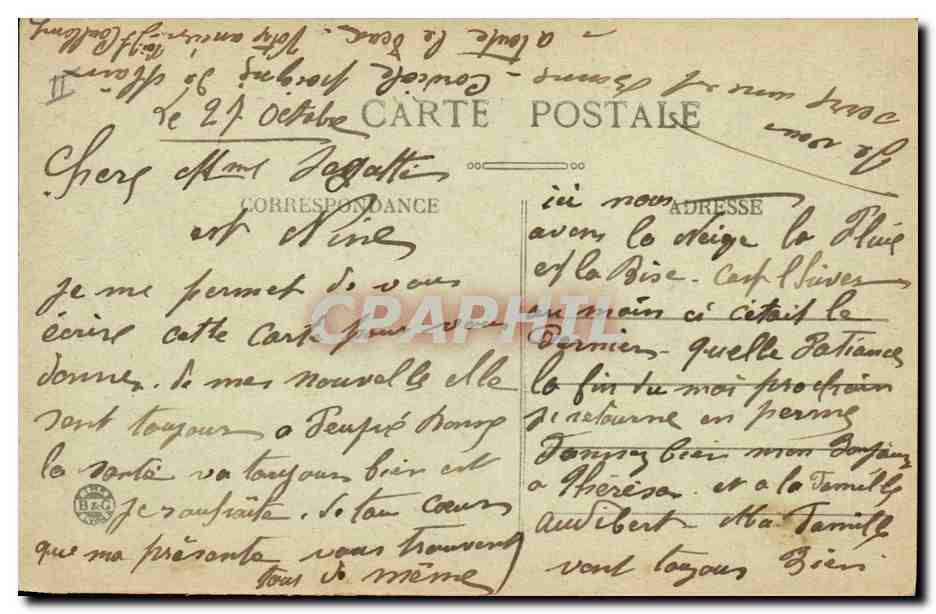 Le 27 Octobre
CARTE POSTALE
Chere Mme
CORRESPONDANCE
et Nine
je me permet de vous
écrire cette Carte pour vous
donner de mes nouvelle elle
sont toujour a Peupré bonne
la santé va toujour bien et
je souhaite de tou coeur
que ma présente vous trouvent
tous de même
ADRESSE
ici nous
avons la Neige la Pluie
et la Bise - cest l'hiver
au moin ci c'était le
Dernier - quelle Patiance
la fin du moi prochain
je retourne en perme
Donnez bien mon Bonjour
a Thérésa et a la Famille
Audibert Ma Famille
vont toujour Bien
Je vous
serre une et Bonne
Cordiale poigné de Main
a toute le deux. Votre ancien
II
B&G
CPAPHIL